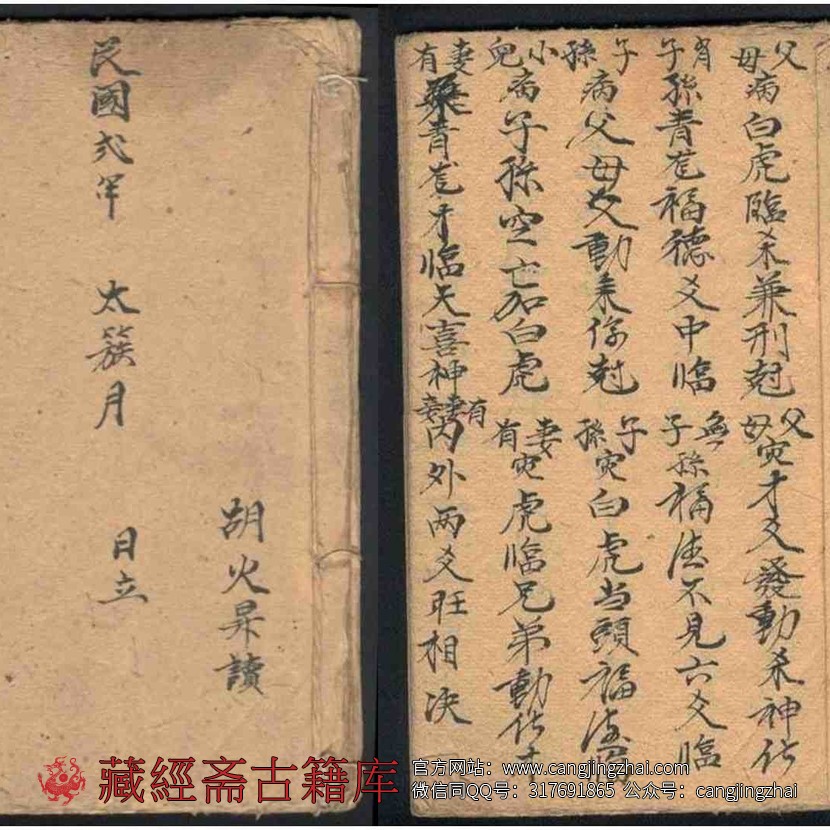 民國弍年 太簇月 日立
胡火昇讀
父母病白虎臨爻未兼刑尅
父母灾才爻發動未神
有子孫青龙福德爻中臨
無子孫福德不見六爻臨
子孫病父母爻動来你尅
子孫灾白虎当頭福德
小兒病子孫空亡加白虎
有妻灾虎臨兄弟動
有妻妾青龙才臨天喜神
有妻妾内外两爻旺相决
藏經斋古籍库
官方网站：www.cangjingzhai.com
微信同QQ号：317691865 公众号：cangjingzhai